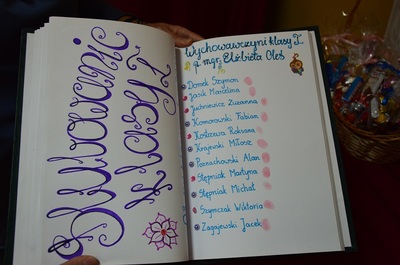 Ślubowanie
klasy I
Wychowawczyni klasy I
p. mgr Elżbieta Oleś
Domek Szymon
Jasik Marcelina
Juchniewicz Zuzanna
Komorowski Fabian
Kostrzewa Roksana
Krajewski Miłosz
Poznachowski Alan
Stępniak Martyna
Stępniak Michał
Szymczak Wiktoria
Zagajewski Jacek